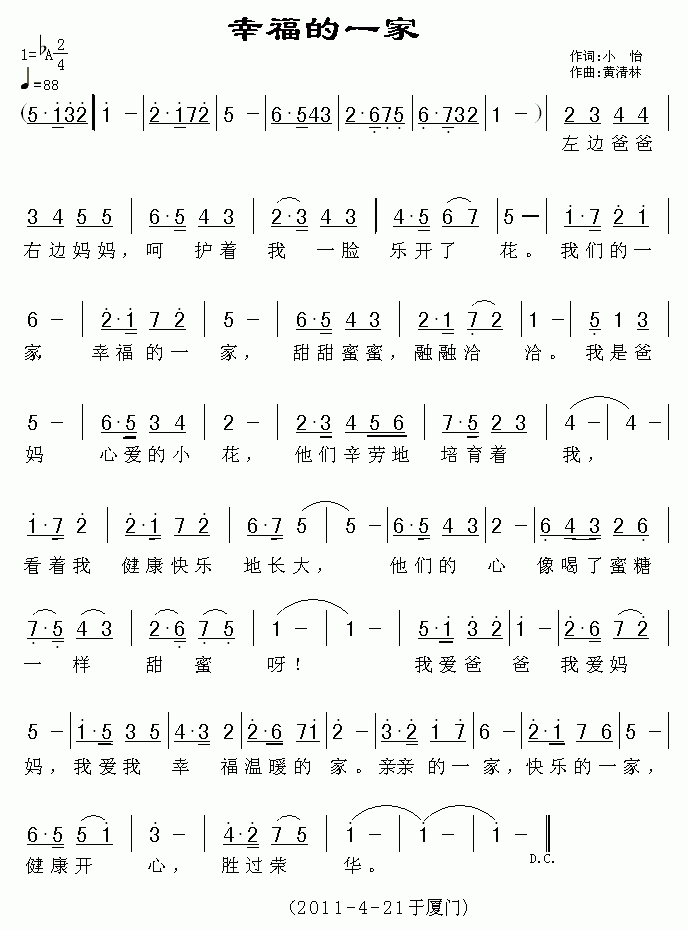 幸福的一家
1=♭A 2/4
作词:小 怡
♩=88
作曲:黄清林
(5·i32 | i - | 2·i72 | 5 - | 6·543 | 2·675 | 6·732 | 1 - ) | 2 3 4 4
左边爸爸
3 4 5 5 | 6·5 4 3 | 2·3 4 3 | 4·5 6 7 | 5 — | i·7 2 i
右边妈妈，呵 护着 我 一脸 乐开了 花。我们的一
6 - | 2·i 7 2 | 5 - | 6·5 4 3 | 2·1 7 2 | 1 - | 5 1 3
家 幸福的一 家，甜甜蜜蜜，融融洽 洽。我是爸
5 - | 6·5 3 4 | 2 - | 2·3 4 5 6 | 7·5 2 3 | 4 - | 4 -
妈 心爱的小 花，他们辛劳地 培育着 我，
i·7 2 | 2·i 7 2 | 6·7 5 | 5 - | 6·5 4 3 | 2 - | 6 4 3 2 6
看着我 健康快乐 地长大， 他们的 心 像喝了蜜糖
7·5 4 3 | 2·6 7 5 | 1 - | 1 - | 5·i 3 2 | i - | 2·6 7 2
一 样 甜 蜜 呀！ 我爱爸 爸 我爱妈
5 - | i·5 3 5 | 4·3 2 | 2·6 7i | 2 - | 3·2 i 7 | 6 - | 2·i 7 6 | 5 -
妈，我爱我 幸 福温暖的 家。亲亲的一 家，快乐的一家，
6·5 5 i | 3 - | 4·2 7 5 | i - | i - | i - ‖
D.C.
健康开 心， 胜过荣 华。
(2011-4-21于厦门)